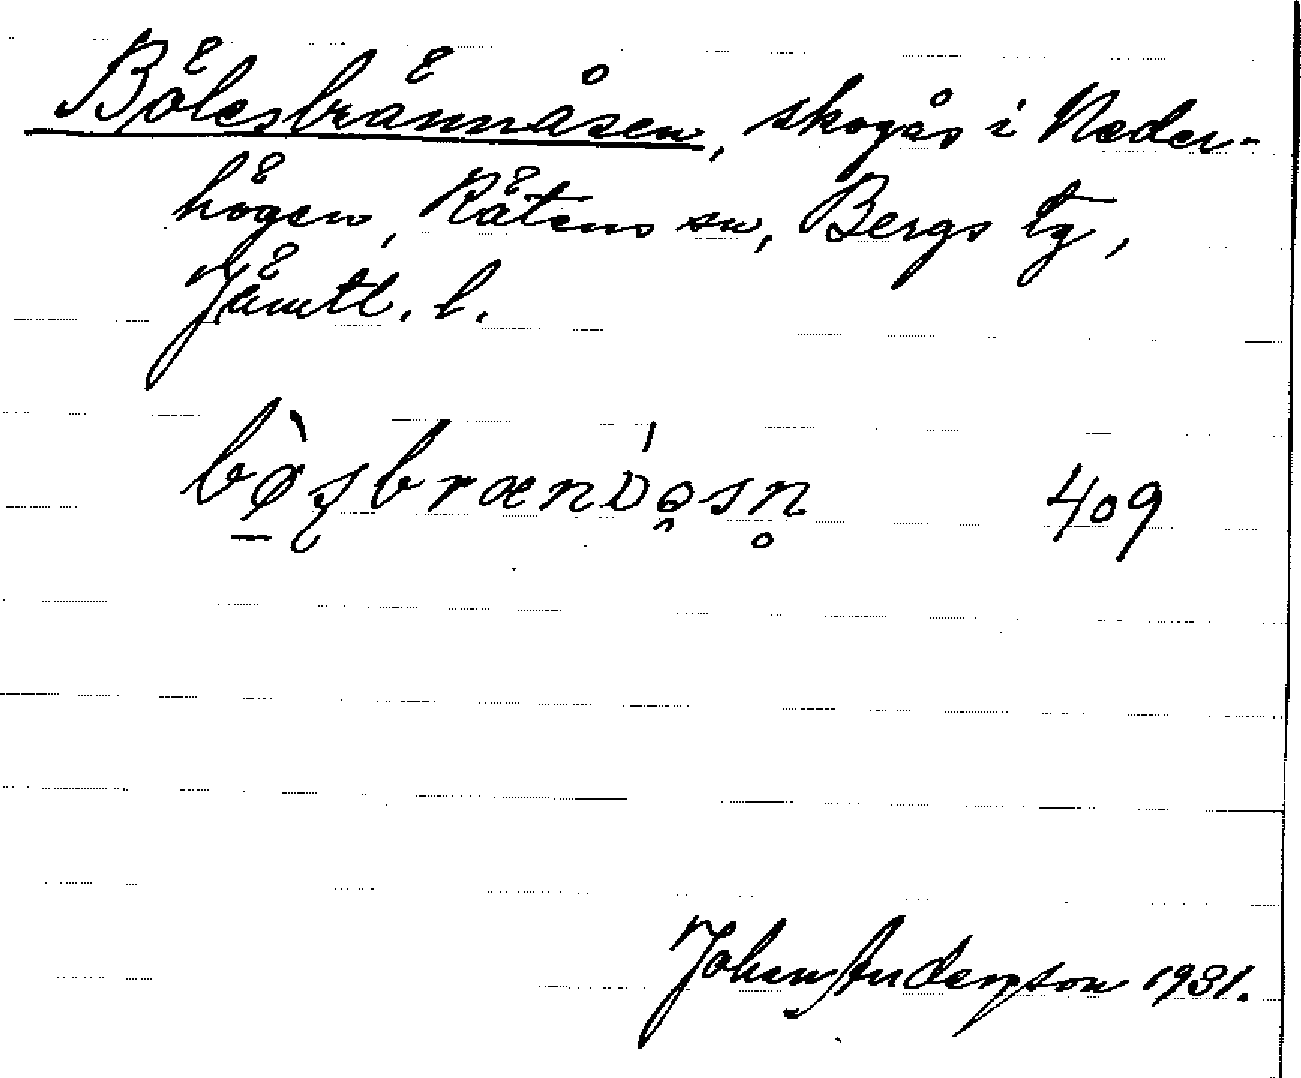 Bölesbrännåsen, skogås i Neder-
högen, Rätens sn, Bergs tg,
Jämtl. l.
409
Johan Anderzson 1931.